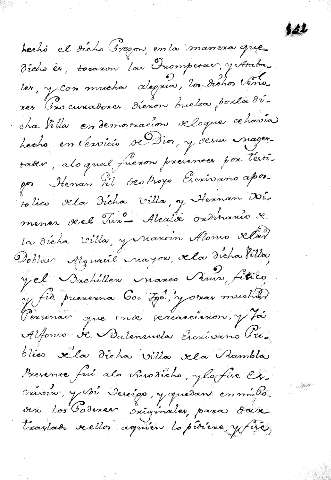 142
hecho el dicho Pregon, en la manera que
dicho es, tocaron las Trompetas, y Ataba-
les, y con mucha alegria, los dichos Seño-
res Procuradores dieron buelta, por la di-
cha Villa en demostracion de lo que se havia
hecho en servicio de Dios, y de sus Mages-
tades, a lo qual fueron presentes por testi-
gos Hernan Gil Escrivano apos-
tolico de la dicha Villa, y Hernan Xi-
menez Alcalde ordinario de
la dicha Villa, y Martin Alonso de las
Doblas Alguacil mayor, de la dicha Villa
y el Bachiller Marco fisico
y otras muchas
Personas que de y Yo
Alfonso de Valenzuela Escrivano Pu-
blico de la dicha Villa de la Rambla
Presente fui a lo susodicho, y lo fice es-
crivir, y soi testigo, y quedan en mi po-
der los Poderes originales, para dar
traslado de ellos a quien lo pidiere, y fize